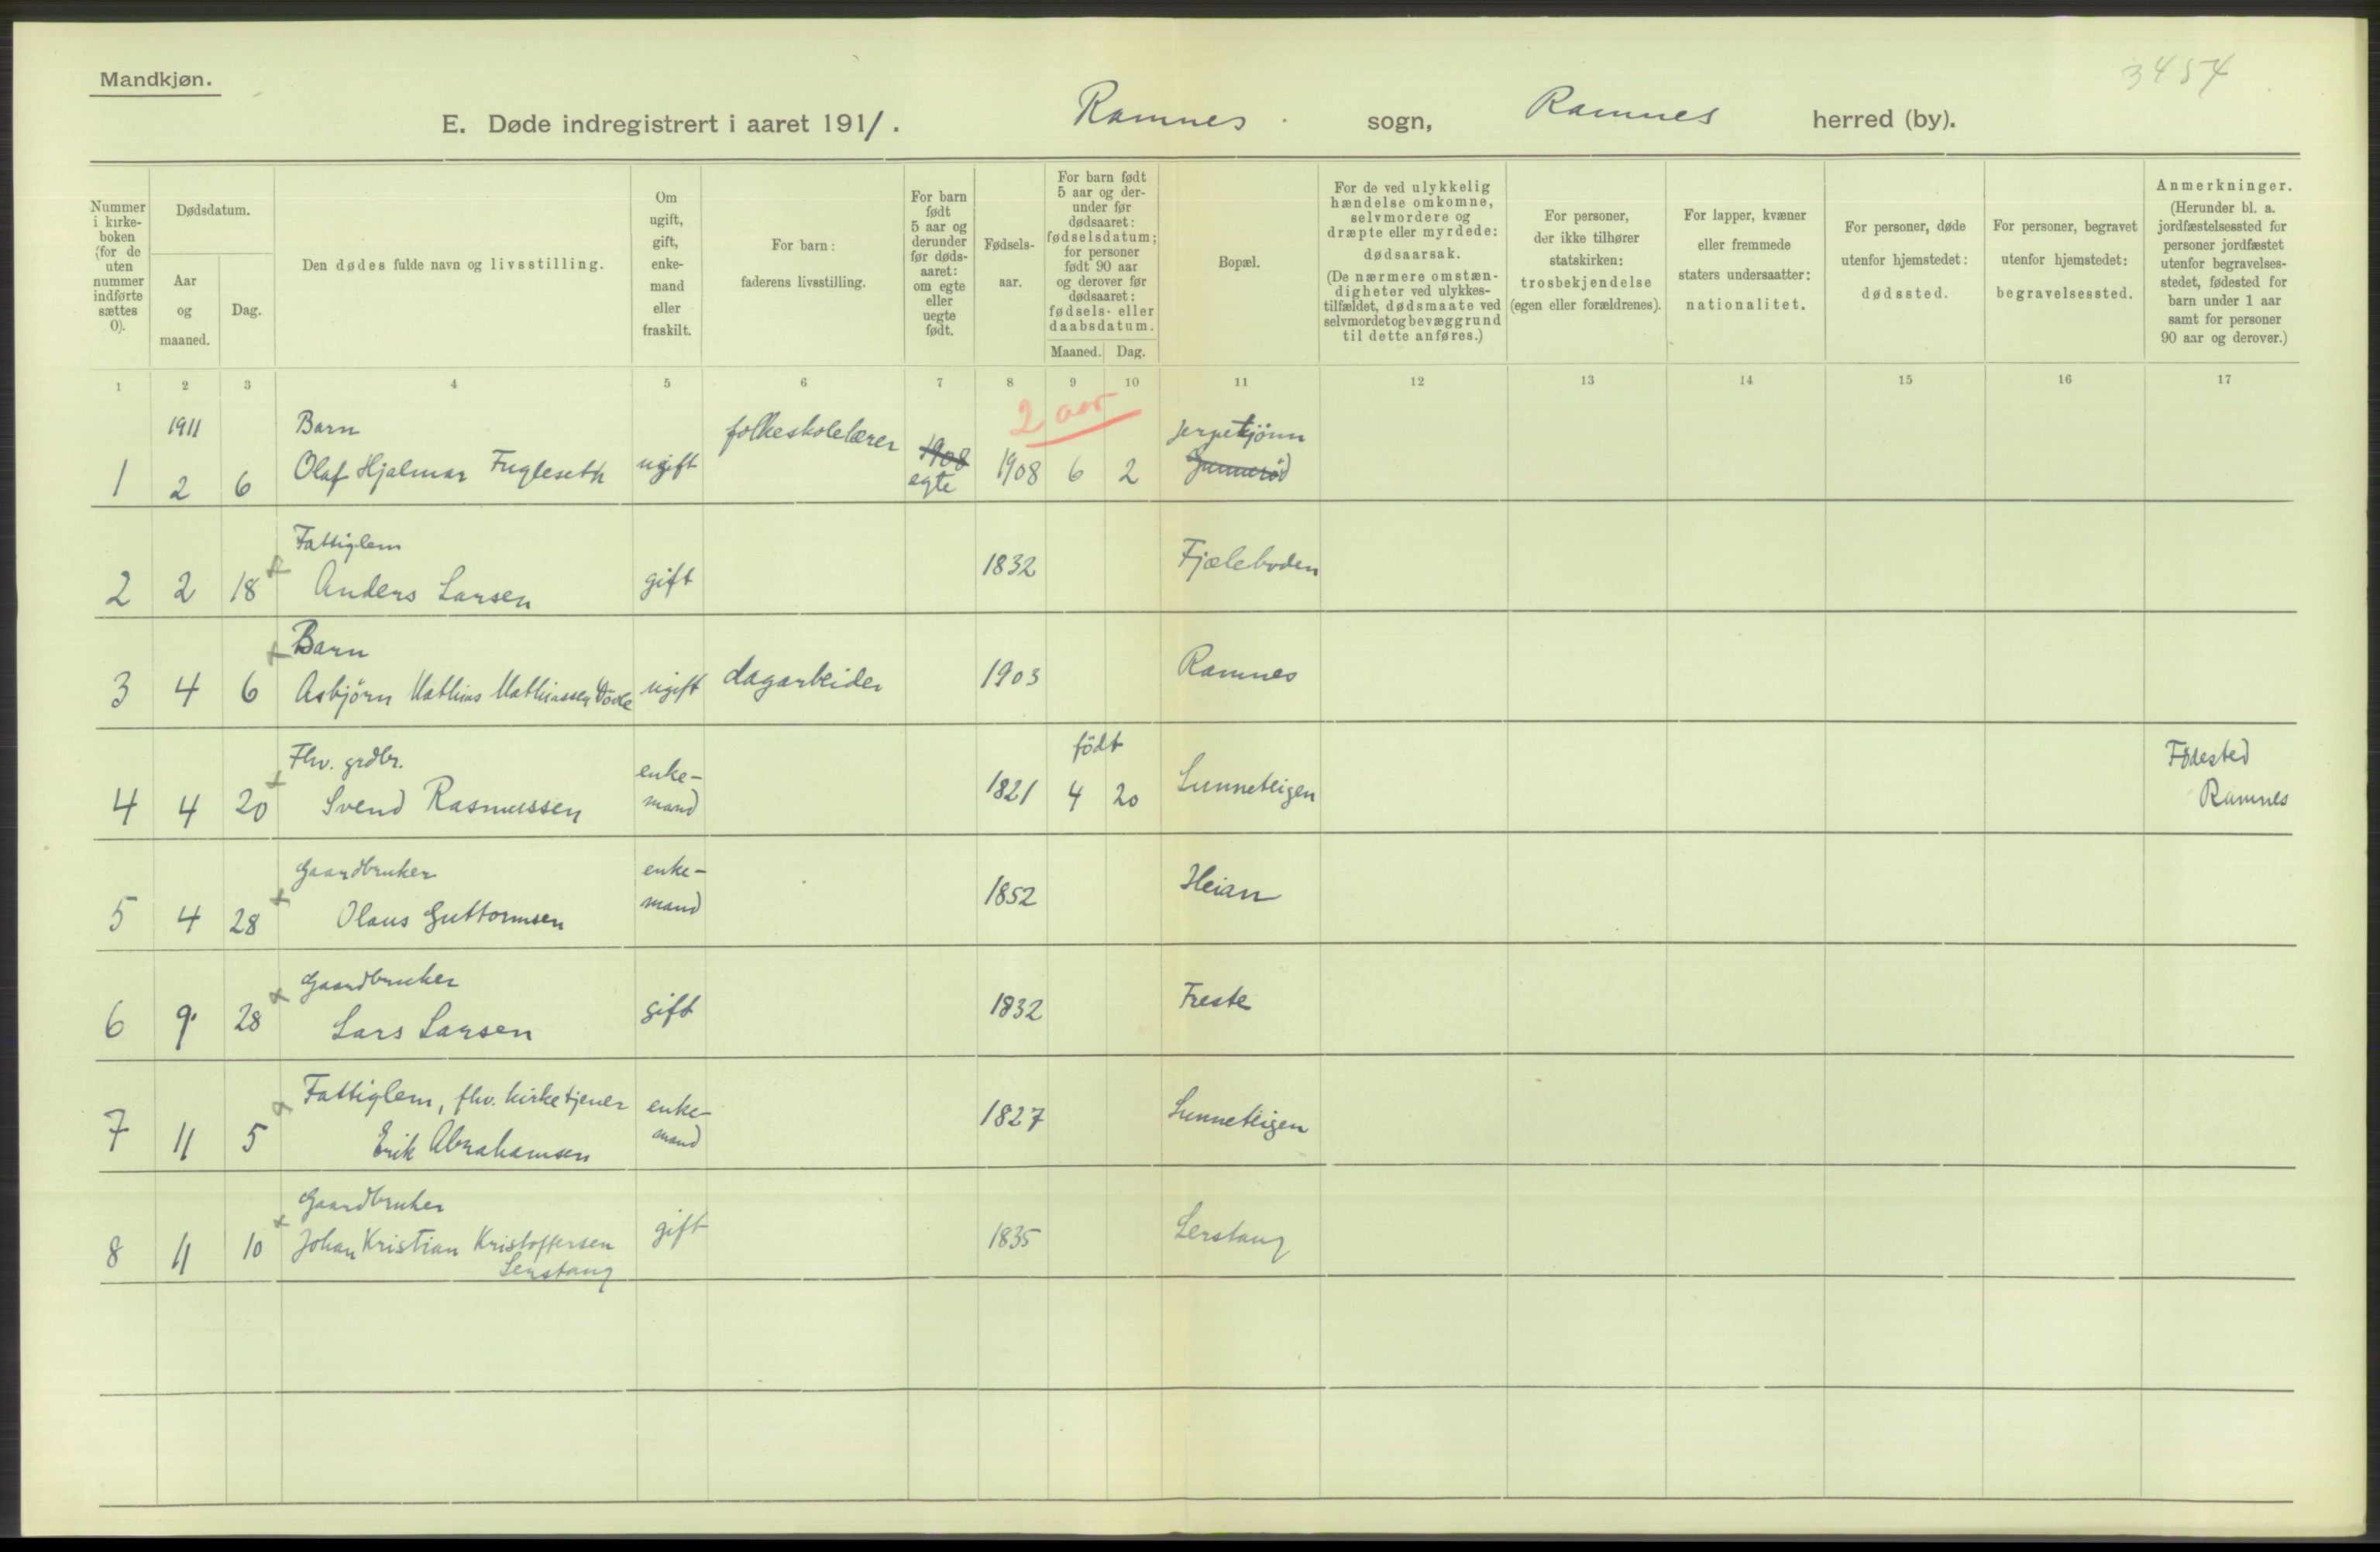 Mandkjøn.
3454
E. Døde indregistrert i aaret 1911. Ramnes sogn, Ramnes herred (by).
Nummer i kirke-boken (for de uten nummer indførte sættes 0).
Dødsdatum.
Aar og maaned.
Dag.
Den dødes fulde navn og livsstilling.
Om ugift, gift, enke-mand eller fraskilt.
For barn: faderens livsstilling.
For barn født 5 aar og derunder før døds-aaret: om egte eller uegte født.
Fødsels-aar.
For barn født 5 aar og der-under før dødsaaret: fødselsdatum; for personer født 90 aar og derover før dødsaaret: fødsels- eller daabsdatum.
Maaned. Dag.
Bopæl.
For de ved ulykkelig hændelse omkomne, selvmordere og dræpte eller myrdede: dødsaarsak. (De nærmere omstæn-digheter ved ulykkes-tilfældet, dødsmaate ved selvmordet og bevæggrund til dette anføres.)
For personer, der ikke tilhører statskirken: trosbekjendelse (egen eller forældrenes).
For lapper, kvæner eller fremmede staters undersaatter: nationalitet.
For personer, døde utenfor hjemstedet: dødssted.
For personer, begravet utenfor hjemstedet: begravelsessted.
Anmerkninger. (Herunder bl. a. jordfæstelsessted for personer jordfæstet utenfor begravelses-stedet, fødested for barn under 1 aar samt for personer 90 aar og derover.)
1 2 3 4 5 6 7 8 9 10 11 12 13 14 15 16 17
2 aar
1911 Barn folkeskolelærer 1908 Jerpekjønn
1 2 6 Olaf Hjalmar Fugleseth ugift egte 1908 6 2
Fattiglem
2 2 18 Anders Larsen gift 1832 Fjæleboden
Barn
3 4 6 Asbjörn Mathias Mathiassen ugift dagarbeider 1903 Ramnes
Fhv. grdbr. enke- født Fødested
4 4 20 Svend Rasmussen mand 1821 4 20 Sunneteigen Ramnes
Gaardbruker enke-
5 4 28 Olaus Guttormsen mand 1852 Heian
Gaardbruker
6 9 28 Lars Larsen gift 1832 Freste
Fattiglem, fhv. kirketjener enke-
7 11 5 Erik Abrahamsen mand 1827 Sunneteigen
Gaardbruker
8 11 10 Johan Kristian Kristoffersen gift 1835 Lerstang
Lerstang